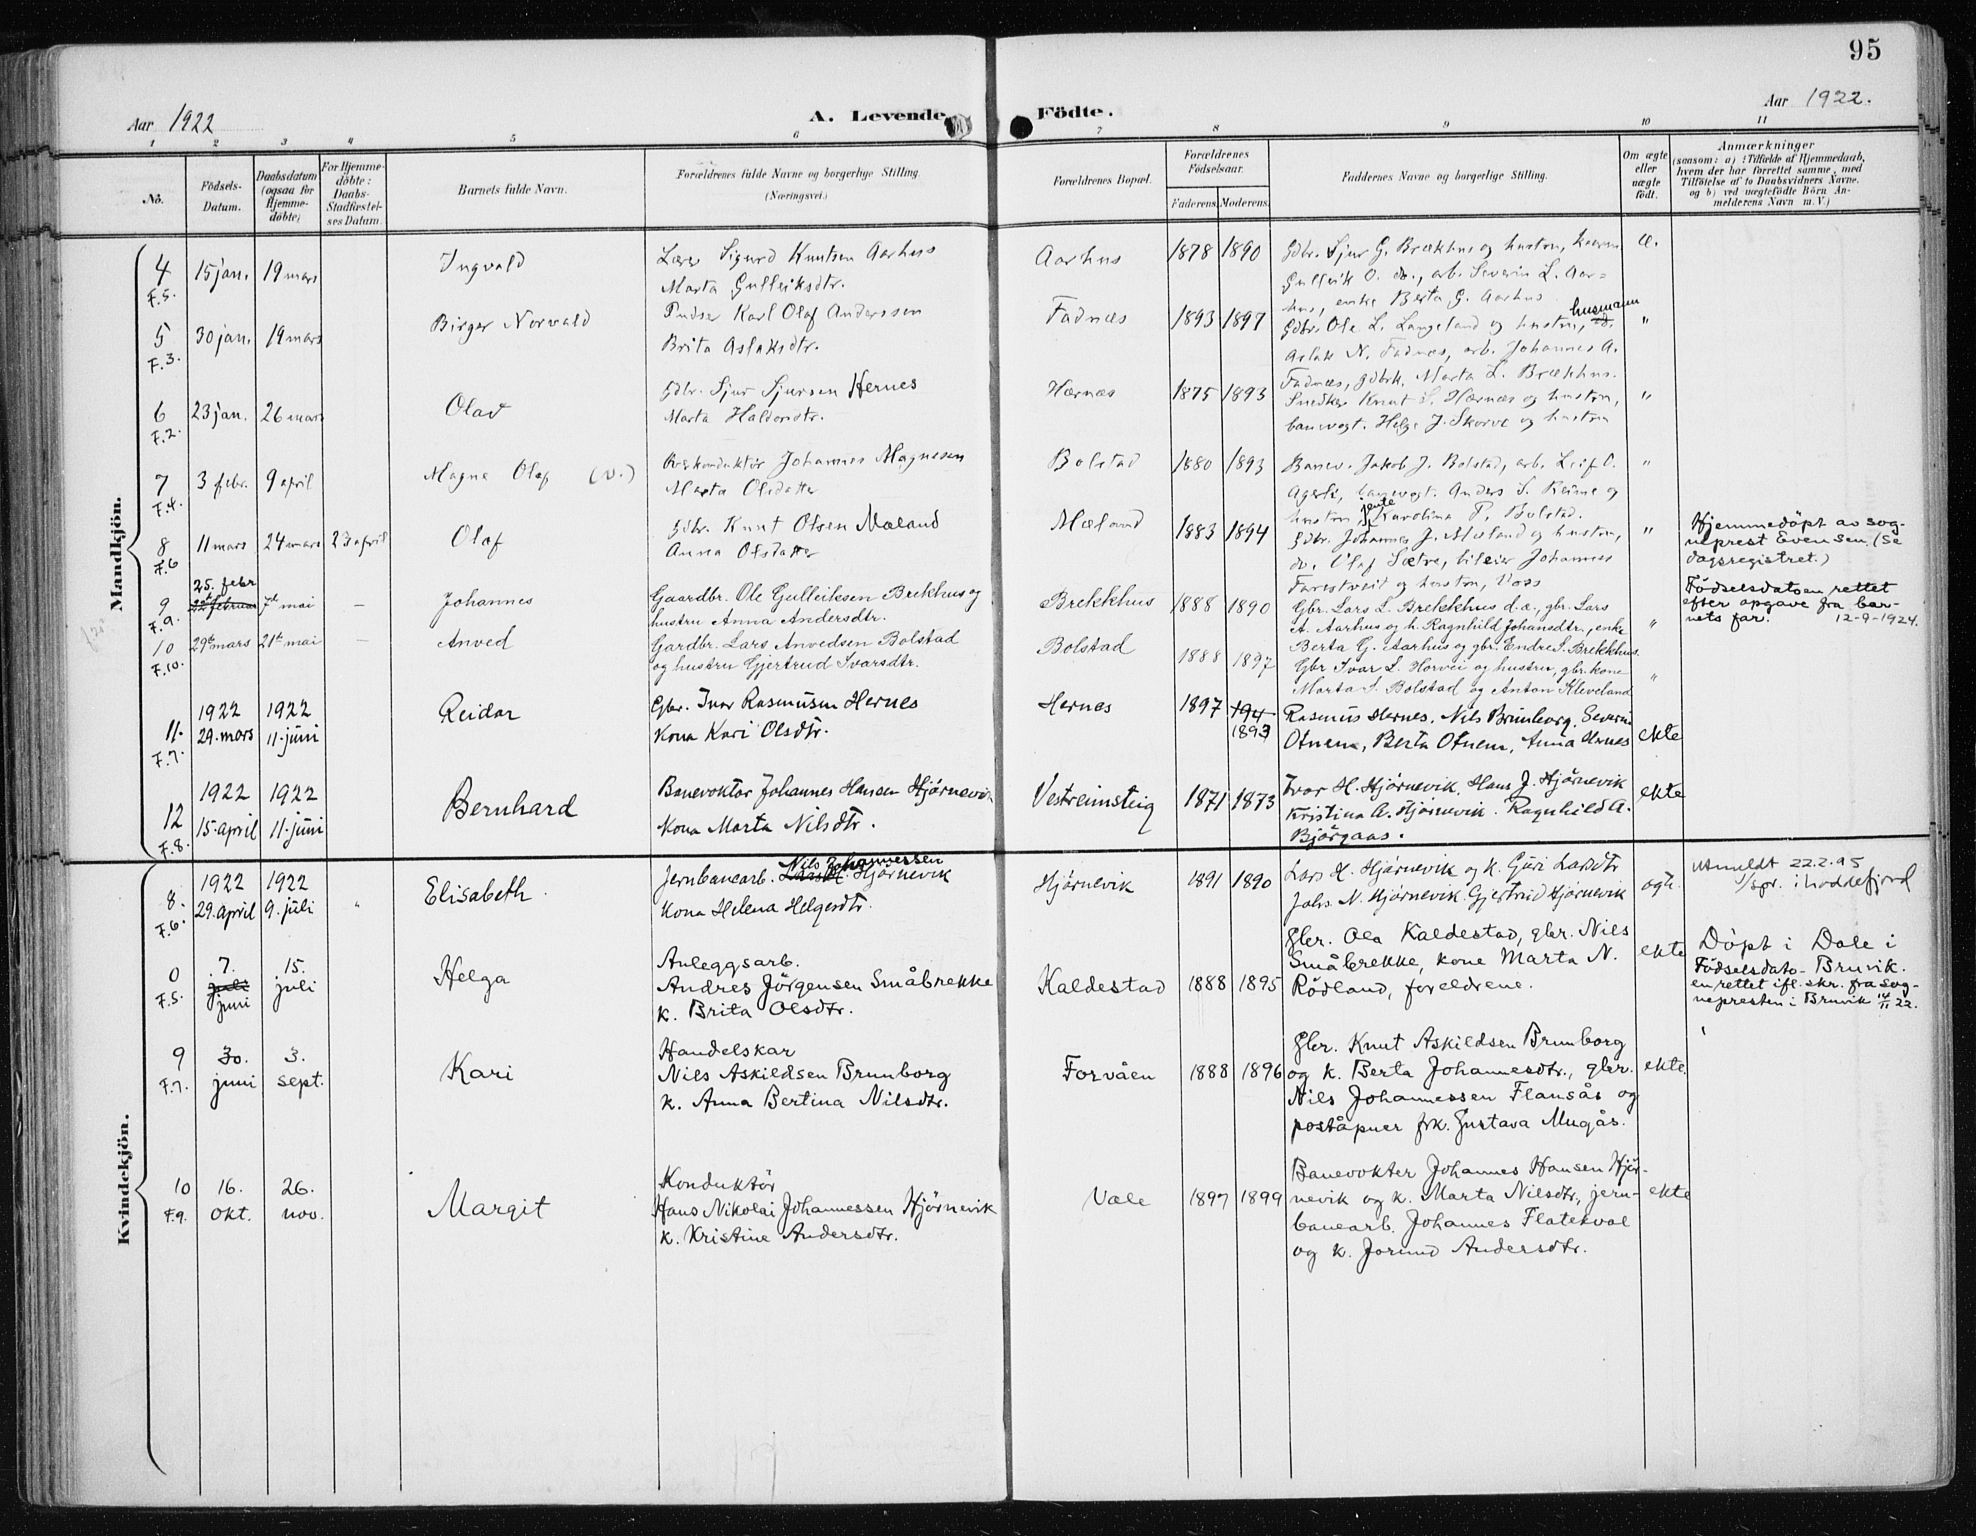 95
Aar 1922
A. Levende Födte.
Aar 1922.
1 2 3 4 5 6 7 8 9 10 11
No.
Födsels-Datum.
Daabsdatum (ogsaa for Hjemme-döbte)
For Hjemme-döbte: Daabs-Stadfæstel-ses Datum.
Barnets fulde Navn.
Forældrenes fulde Navne og borgerlige Stilling.
(Næringsvei.)
Forældrenes Bopæl.
Forældrenes Födselsaar.
Faderens. Moderens.
Faddernes Navne og borgerlige Stilling.
Om ægte eller uægte födt.
Anmærkninger
(saasom: a) i Tilfælde af Hjemmedaab,
hvem der har forrettet samme, med
Tilföielse af to Daabsvidners Navne.
og b) ved uægtefödte Börn An-
melderens Navn m. V.)
Mandkjön.
4 F.5. 15 jan. 19 mars Ingvald
Lærer Sigurd Knutsen Aarhus
Marta Gulleiksdtr.
Aarhus 1878 1890
Gdbr. Sjur G. Brækhus og hustru,
Gulleik O. do., arb. Severin L. Aar-
hus, enke Berta G. Aarhus
æ.
5 F.3. 30 jan. 19 mars Birger Norvald
Pudser Karl Olaf Anderssen
Brita Aslaksdtr.
Fadnæs 1893 1897
husmann
Gdbr. Ole L. Langeland og hustru, do.
Aslak N. Fadnæs, arb. Johannes A.
Fadnæs, gdbrk. Marta L. Brækhus.
"
6 F.2. 23 jan. 26 mars Olav
Gdbr. Sjur Sjursen Hernes
Marta Haldorsdtr.
Hærnæs 1875 1893
Snedker Knut S. Hærnæs og hustru,
banevogt. Helge J. Skorve og hustru
"
7 F.4. 3 febr. 9 april Magne Olaf (v.)
Overkonduktör Johannes Magnesen
Marta Olsdatter
Bolstad 1880 1893
Banev. Jakob J. Bolstad, arb. Leif O.
Agerli, banevogt. Anders S. Reime og
hustru jente Karolina P. Bolstad.
"
8 F.6 11 mars 24 mars 23 april Olaf
Gdbr. Knut Olsen Mæland
Anna Olsdatter
Mæland 1883 1894
Gdbr. Johannes J. Mæland og hustru,
do. Olaf Sætre, bileier Johannes
Farestveit og hustru, Voss
"
Hjemmedöpt av sog-
neprest Evensen. (Se
dagsregistret.)
9 F.9. 25. febr 22de februar 7de mai – Johannes
Gaardbr. Ole Gulleiksen Brekhus og
hustru Anna Andersdtr.
Brekkhus 1888 1890
Gbr. Lars L. Brekkhus d.æ., gbr. Lars
A. Aarhus og h. Ragnhild Johansdtr., enke
Berta G. Aarhus og gbr. Endre S. Brekkhus.
"
Födselsdatoen rettet
efter opgave fra bar-
nets far. 12-9-1924.
10 F.10. 29de mars 21de mai – Anved
Gardbr. Lars Anvedsen Bolstad
og hustru Gjertrud Ivarsdtr.
Bolstad 1888 1897
Gbr Ivar L. Horvei og hustru, gbr. kone
Marta S. Bolstad og Anton Kleveland
"
11. F.7. 1922 29. mars 1922 11. juni Reidar
Gbr. Ivar Rasmusen Hernes
Kona Kari Olsdtr.
Hernes 1897 194 1893
Rasmus Hernes, Nils Brunborg, Severin
Otnena, Berta Otnem, Anna Hernes
ekte
12 F.8. 1922 15. april 1922 11. juni Bernhard
Banevoktar Johannes Hansen Hjørnevik
Kona Marta Nilsdtr.
Vestreimsteig 1871 1873
Ivar H. Hjørnevik, Hans J. Hjørnevik
Kristina A. Hjørnevik. Ragnhild A.
Bjørgaas.
ekte
Kvindekjön.
8. F.6. 1922 29. april 1922 9. juli " Elisabeth.
Nils Johannessen
Jernbanearb. Lars H. Hjørnevik
Kona Helena Helgesdtr.
Hjørnevik 1891 1890
Lars H. Hjørnevik og k. Guri Larsdtr
Johs. N. Hjørnevik. Gjertrud Hjørnevik
egte.
Utmeldt 22.2.95
0 F.5. 7. juli juni 15. juli Helga
Anleggsarb.
Andres Jörgensen Småbrekke
k. Brita Olsdtr.
Kaldestad 1888 1895
Gbr. Ola Kaldestad, gbr. Nils
Småbrekke, kone Marta N.
Rödland, foreldrene.
ekte
Döpt i Dale i
Bruvik.
Födselsdato-
en rettet ifl. skr. fra sog-
nepresten i Bruvik 14/11 22.
9 F.7. 30. juni 3. sept. Kari
Handelskar
Nils Askildsen Brunborg
k. Anna Bertina Nilsdtr.
Forvåen 1888 1896
Gbr. Knut Askildsen Brunborg
og k. Berta Johannesdtr., gbr.
Nils Johannessen Flansås og
poståpner frk. Gustava Mugås.
ekte.
10 F.9. 16. okt. 26. nov. Margit
Konduktör
Hans Nikolai Johannessen Hjørnevik
k. Kristine Andersdtr.
Vale 1897 1899
Banevokter Johannes Hansen Hjör-
nevik og k. Marta Nilsdtr., jern-
banearb. Johannes Flatekval
og k. Jorunn Andersdtr.
ekte